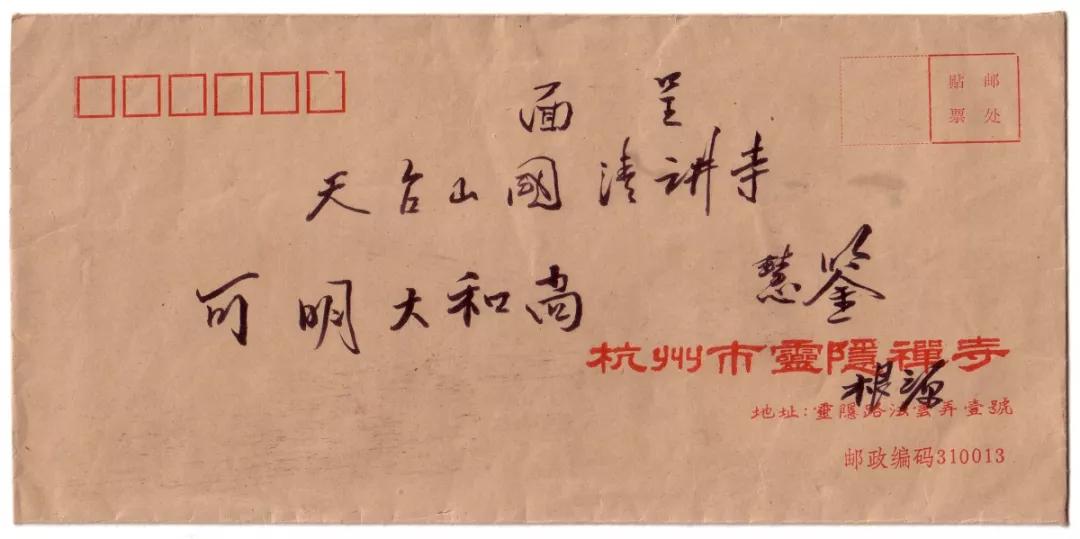 贴 邮
票 处
面 呈
天台山國清讲寺
可明大和尚 慧鉴
杭州市靈隱禪寺
根源
地址:靈隱路法雲弄壹號
邮政编码310013